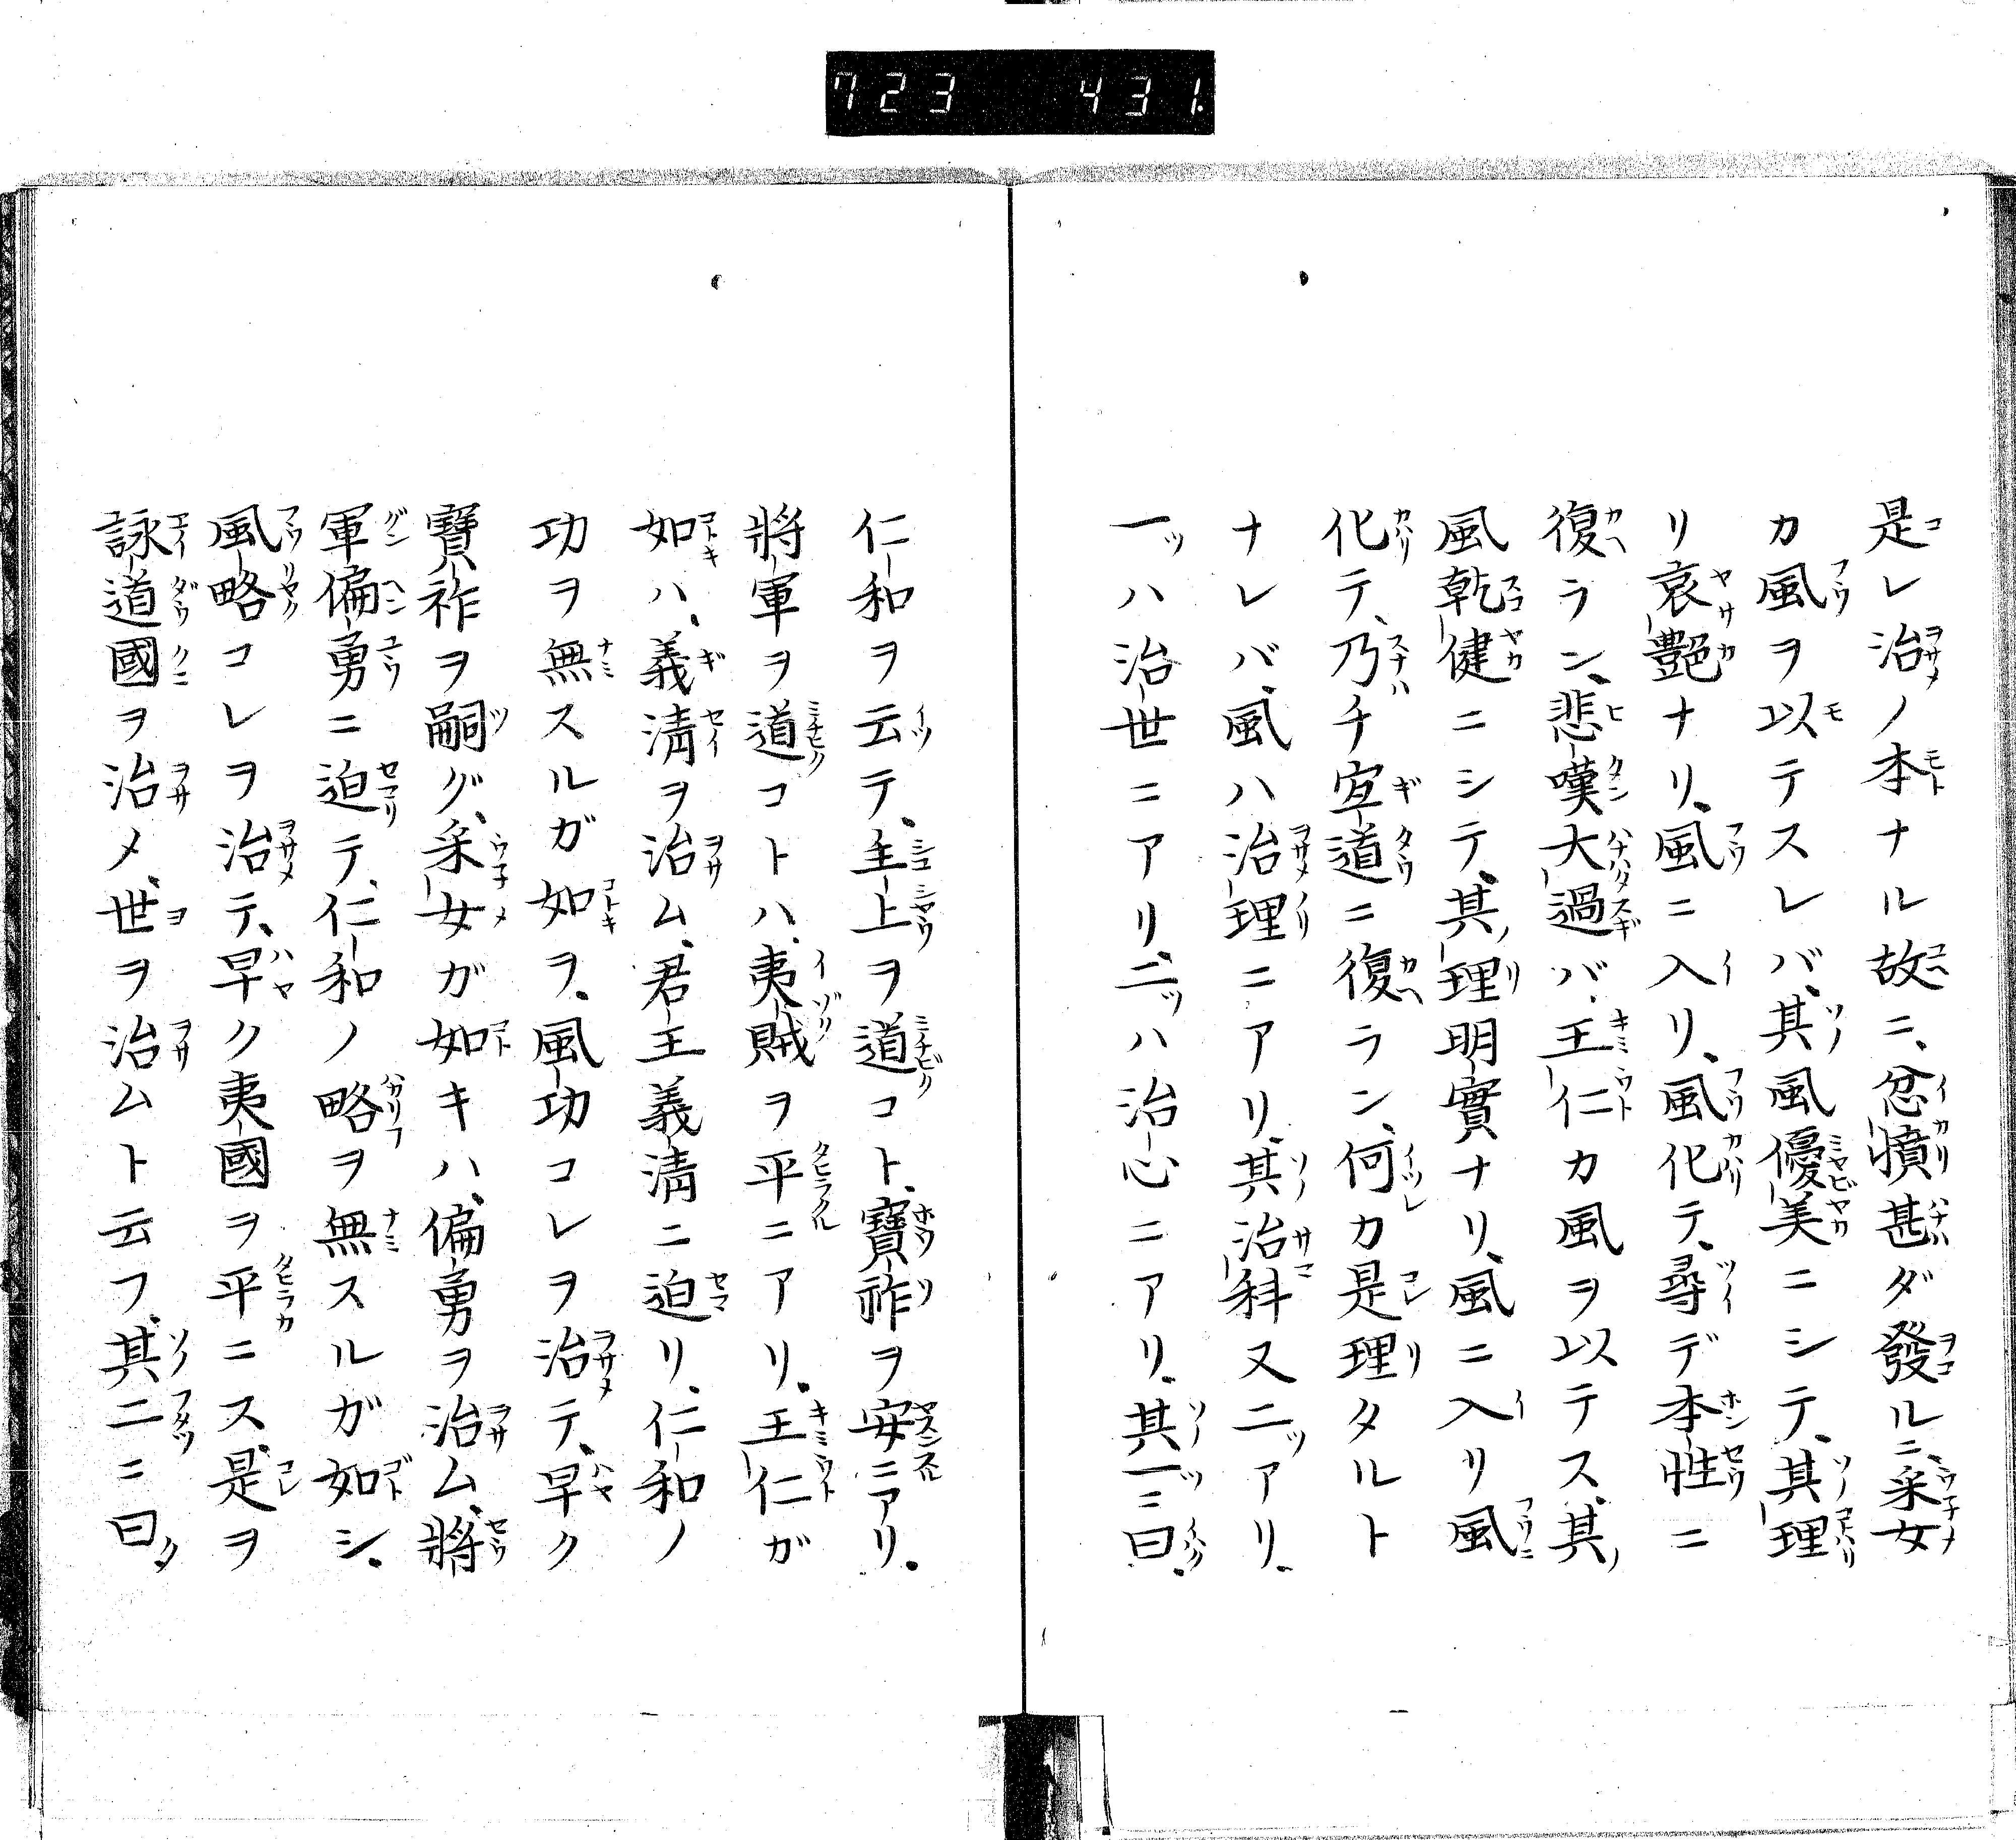 723 431.
是レ治ノ本ナル故ニ、忿憤甚ダ發ルニ、采女
カ風ヲ以テスレバ、其風優美ニシテ、其理
リ哀艷ナリ、風ニ入リ、風化テ、尋デ本性ニ
復ラン、悲嘆大過バ、王仁カ風ヲ以テス、其
風乾健ニシテ、其理明實ナリ、風ニ入リ風
化テ、乃チ宜道ニ復ラン、何カ是理タルト
ナレバ、風ハ治理ニアリ、其治科又二ッアリ、
一ッハ治世ニアリ、二ッハ治心ニアリ、其一ニ曰、
仁和ヲ云テ、主上ヲ道コト、寶祚ヲ安ニアリ、
將軍ヲ道コトハ、夷賊ヲ平ニアリ、王仁ガ
如ハ、義淸ヲ治ム、君王義淸ニ迫リ、仁和ノ
功ヲ無スルガ如ヲ、風功コレヲ治テ、早ク
寶祚ヲ嗣グ、采女ガ如キハ、偏勇ヲ治ム、將
軍偏勇ニ迫テ、仁和ノ略ヲ無スルガ如シ、
風略コレヲ治テ、早ク夷國ヲ平ニス、是ヲ
詠道國ヲ治メ、世ヲ治ムト云フ、其二ニ曰